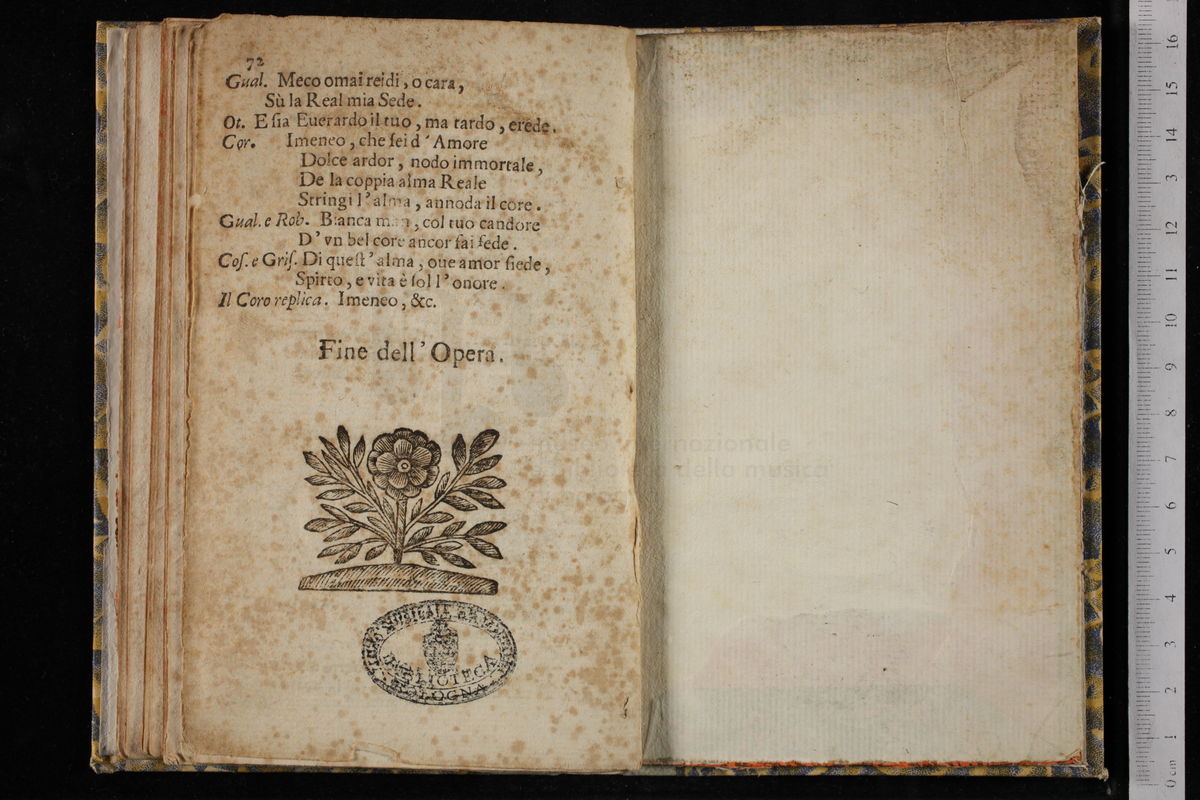 72
Gual. Meco omai reidi, o cara,
Sù la Real mia Sede.
Ot. E ſia Euerardo il tuo, ma tardo, erede.
Cor. Imeneo, che ſei d'Amore
Dolce ardor, nodo immortale,
De la coppia alma Reale
Stringi l'alma, annoda il core.
Gual. e Rob. Bianca man, col tuo candore
D'vn bel core ancor fai fede.
Coſ. e Griſ. Di queſt'alma, oue amor ſiede,
Spirto, e vita è ſol l'onore.
Il Coro replica. Imeneo, &c.
Fine dell'Opera.
LICEO MUSICALE
BIBLIOTECA
BOLOGNA
museo internazionale
e biblioteca della musica
0 cm 1 2 3 4 5 6 7 8 9 10 11 12 13 14 15 16